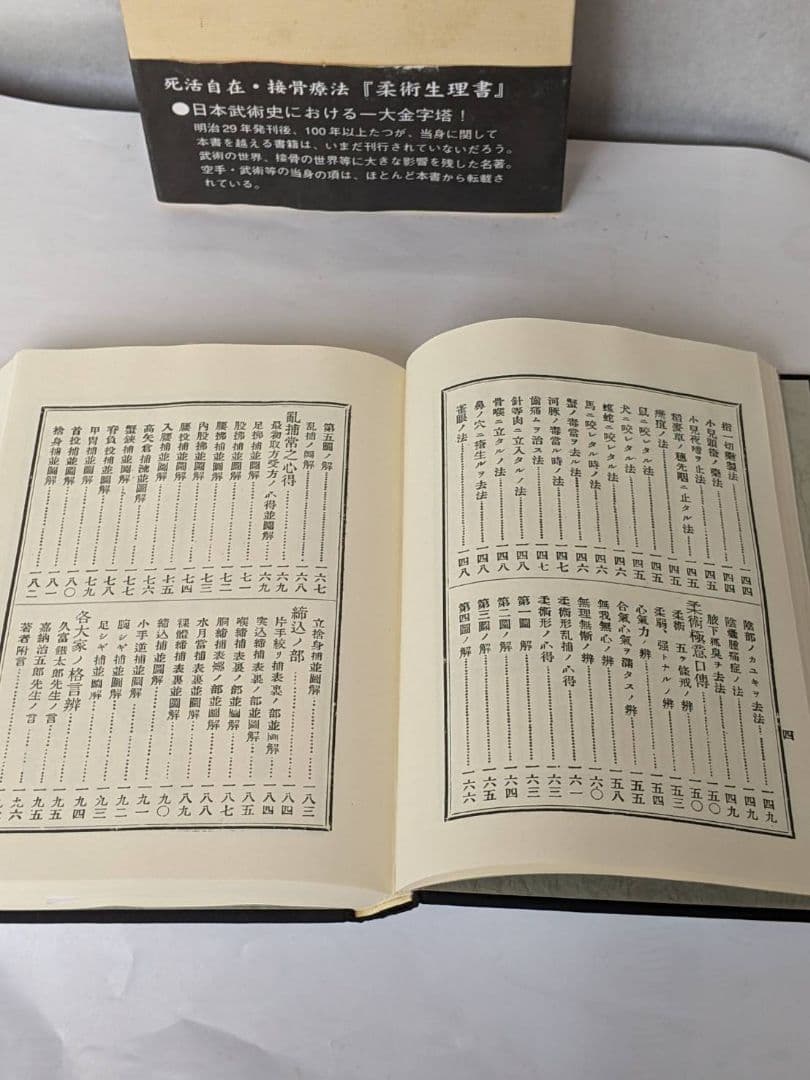 死活自在・接骨療法『柔術生理書』
●日本武術史における一大金字塔！
明治29年発刊後、100年以上たつが、当身に関して
本書を越える書籍は、いまだ刊行されていないだろう。
武術の世界、接骨の世界等に大きな影響を残した名著。
空手・武術等の当身の項は、ほとんど本書から転載さ
れている。
四
一切藥製法…………一四四
小兒頭瘡ノ藥法…………一四四
小兒夜啼ヲ止法…………一四五
稻麥草ノ穗先咽ニ止タル法…………一四五
鼠ニ咬レタル法…………一四五
犬ニ咬レタル法…………一四六
蝮蛇ニ咬レタル法…………一四六
馬ニ咬レタル時ノ法…………一四六
蟹ノ毒當ヲ去ル法…………一四六
河豚ノ毒當ル時ノ法…………一四七
齒痛ムヲ治ス法…………一四七
針等肉ニ立入タルノ法…………一四八
骨喉ニ立タルノ法…………一四八
鼻ノ穴ニ瘡生ルヲ去法…………一四八
雀眼ノ法…………一四八
陰部ノカユキヲ去法…………一四九
陰囊腫痛症ノ法…………一四九
腋下狐臭ヲ去法…………一五〇
柔術極意口傳…………一五〇
柔術 五ヶ條戒ノ辨…………一五三
柔弱、强トナルノ辨…………一五四
心氣力ノ辨…………一五五
合氣心氣ヲ滿タスノ辨…………一五八
無我無心ノ辨…………一六〇
無理無慚ノ辨…………一六一
柔術形乱捕ノ心得…………一六三
柔術形ノ心得…………一六三
第一圖ノ解…………一六三
第二圖ノ解…………一六四
第三圖ノ解…………一六五
第四圖ノ解…………一六六
第五圖ノ解…………一六七
乱捕ノ圖解…………
亂捕常之心得…………一六九
最初取方受方ノ心得並圖解…………一六九
足拂捕並圖解…………
股拂捕並圖解…………一七一
腰拂捕並圖解…………一七二
內股拂捕並圖解…………一七三
腰投捕並圖解…………一七四
入腰捕並圖解…………一七五
高矢倉捕並圖解…………一七六
蟹鋏捕並圖解…………一七七
脊負投捕並圖解…………一七八
甲冑捕並圖解…………一七九
首投捕並圖解…………一八〇
捨身捕並圖解…………一八二
立捨身捕並圖解…………一八三
締込ノ部…………一八四
片手絞リ捕表裏ノ部並圖解…………一八四
突込締捕表裏ノ部並圖解…………
喉締捕表裏ノ部並圖解…………一八五
胴締捕表裏ノ部並圖解…………一八七
水月當捕表裏並圖解…………一八八
裸體締捕表裏並圖解…………一八九
締込捕並圖解…………一九〇
小手逆捕並圖解…………一九一
腕シギ捕並圖解…………一九二
足シギ捕並圖解…………一九三
各大家ノ格言辨…………一九四
久富鐵太郎先生ノ言…………一九五
嘉納治五郎先生ノ言…………一九五
著者附言…………一九六